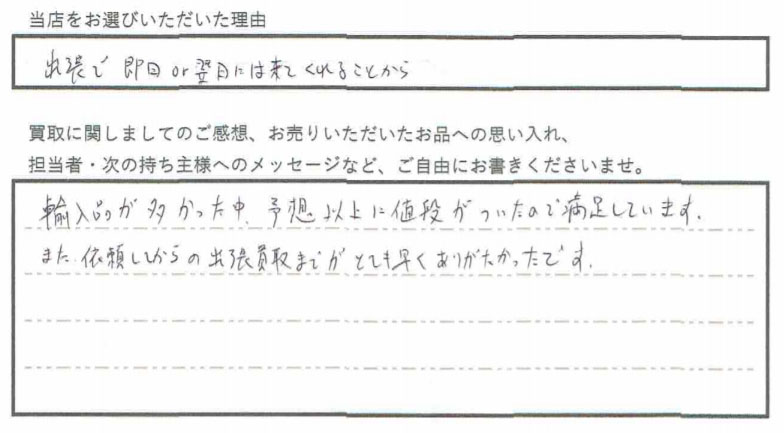 当店をお選びいただいた理由
出張で 即日or翌日には来てくれることから
買取に関しましてのご感想、お売りいただいたお品への思い入れ、
担当者・次の持ち主様へのメッセージなど、ご自由にお書きくださいませ。
輸入品が多かった中、予想以上に値段がついたので満足しています。
また、依頼してからの出張買取までがとても早くありがたかったです。